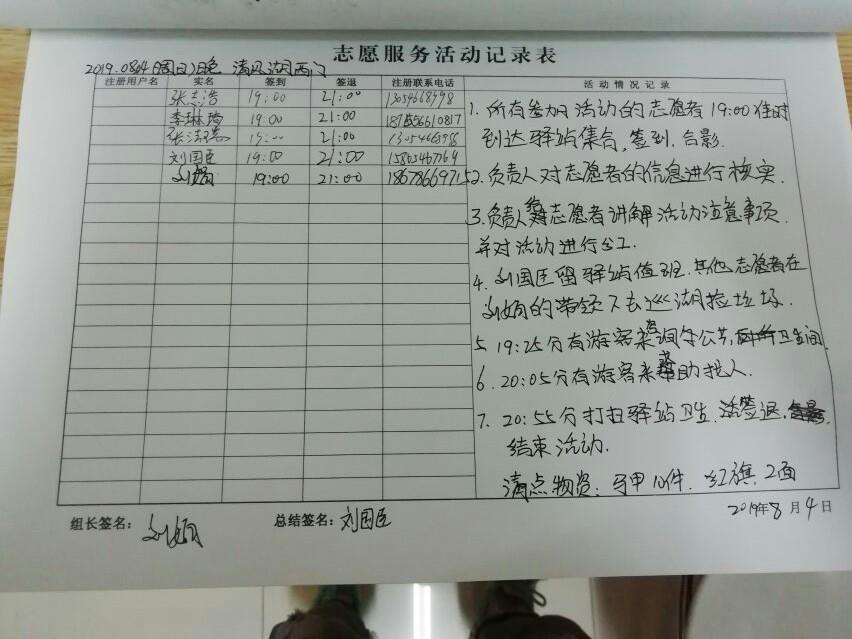 志愿服务活动记录表
2019.0804 周日晚 清风湖西门
注册用户名 实名 签到 签退 注册联系电话 活动情况记录
张志浩 19:00 21:00
李琳琦 19:00 21:00
19:00 21:00
刘国臣 19:00 21:00
刘娟 19:00 21:00 18678669715
1. 所有参加活动的志愿者19:00准时
到达驿站集合,签到,合影.
2.负责人对志愿者的信息进行核实.
3.负责人给志愿者讲解活动注意事项.
并对活动进行分工.
4. 刘国臣留驿站值班.其他志愿者在
刘娟的带领下去巡湖捡垃圾.
5. 19:25分有游客来询问公共卫生间.
6. 20:05分有游客来求助找人.
7. 20:55分打扫驿站卫生.签退.
结束活动.
清点物资:马甲10件.红旗.2面
2019年8月4日
组长签名:刘娟 总结签名:刘国臣